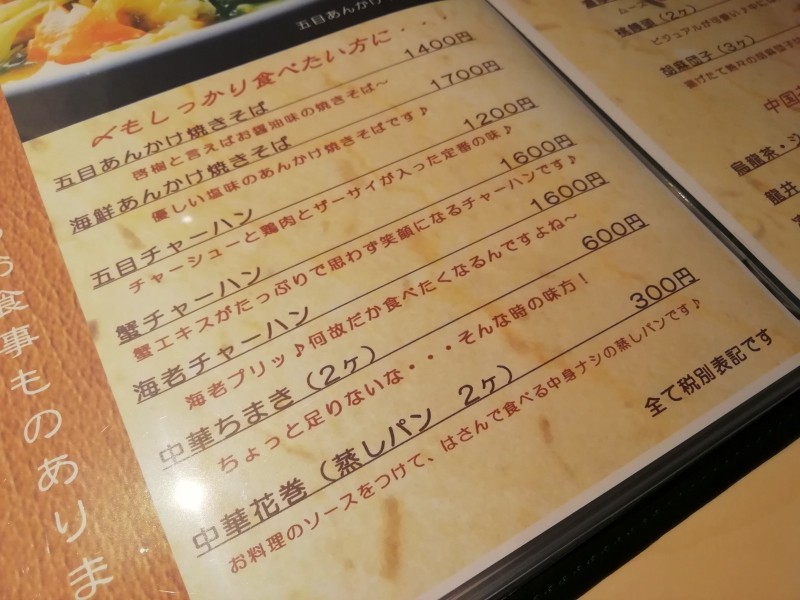 五目あんかけ
〆もしっかり食べたい方に・・・！
五目あんかけ焼きそば 1400円
啓樹と言えばお醤油味の焼きそば～
海鮮あんかけ焼きそば 1700円
優しい塩味のあんかけ焼きそばです♪
五目チャーハン 1200円
チャーシューと鶏肉とザーサイが入った定番の味♪
蟹チャーハン 1600円
蟹エキスがたっぷりで思わず笑顔になるチャーハンです♪
海老チャーハン 1600円
海老プリッ♪何故だか食べたくなるんですよね～
中華ちまき（2ヶ） 600円
ちょっと足りないな・・・そんな時の味方！
中華花巻（蒸しパン 2ヶ） 300円
お料理のソースをつけて、はさんで食べる中身ナシの蒸しパンです♪
全て税別表記です
お食事ものありま
ムース
（2ヶ）
胡麻団子（3ヶ）
中国
烏龍茶・ジ
龍井